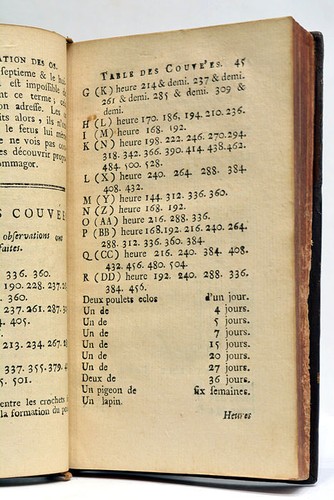 ATION DES OS.
septieme & le hui
est impossible de
nt ce terme; ce
on adresse. Les
its alors, ils n'a
le fetus lui même
ne vois pas com
découvrir prop
ommagor.
S COUVÉ
observations ont
faites.
336. 360.
190. 228. 237.
237. 261. 287. 30
4. 405.
213. 234. 267.
337. 355. 379. 4
5. 501.
entre les crochets
la formation du po
TABLE DES COUVE'ES. 45
G (K) heure 214 & demi. 237 & demi.
261 & demi. 285 & demi. 309 &
demi.
H (L) heure 170. 186, 194. 210. 236.
I (M) heure 168. 192.
K (N) heure 198. 222. 246. 270. 294.
318. 342. 366. 390. 414. 438. 462.
484. 500. 528.
L (X) heure 240. 264. 288. 384.
408. 432.
M (Y) heure 144. 312. 336. 360.
N (Z) heure 168. 192.
O (AA) heure 216. 288. 336.
P (BB) heure 168. 192. 216. 240. 264.
288. 312. 336. 360. 384.
Q (CC) heure 216. 240. 384. 408.
432. 456. 480. 504.
R (DD) heure 192. 240. 288. 336.
384. 456.
Deux poulets eclos d'un jour.
Un de 4 jours.
Un de 5 jours.
Un de 7 jours.
Un de 15 jours.
Un de 20 jours.
Un de 27 jours.
Deux de 36 jours.
Un pigeon de six semaines.
Un lapin.
Heures